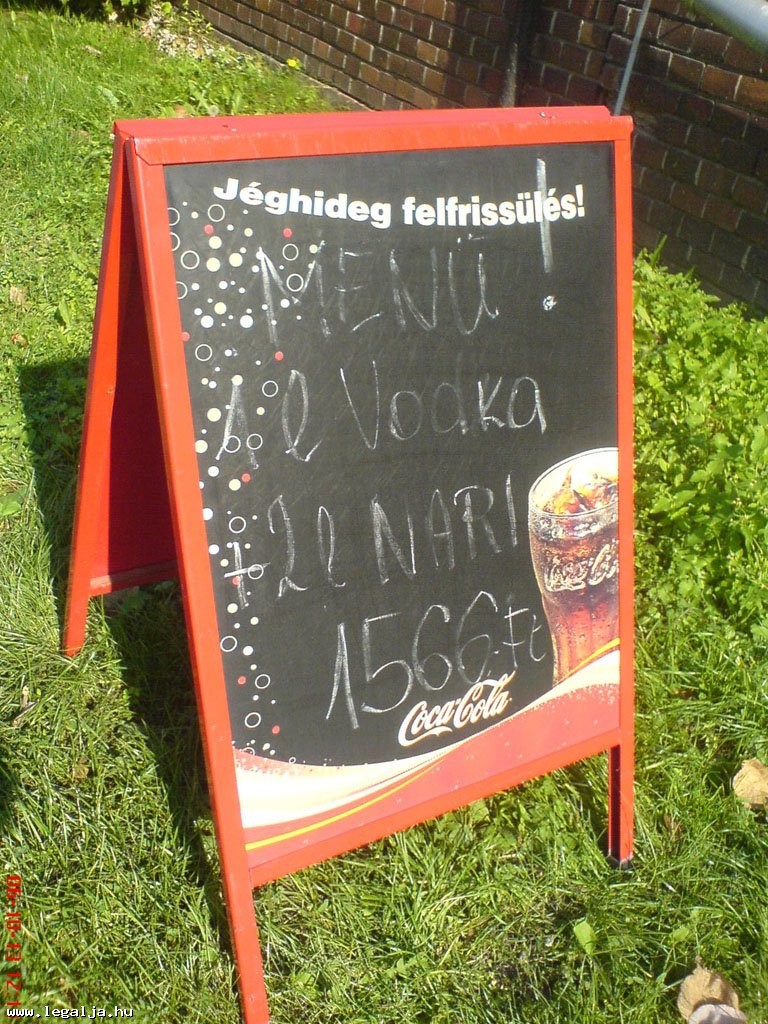 Jéghideg felfrissülés!
MENÜ!
1l Vodka
+2l NARI
1566.-Ft
Coca-Cola
Coca-Cola
www.legalja.hu